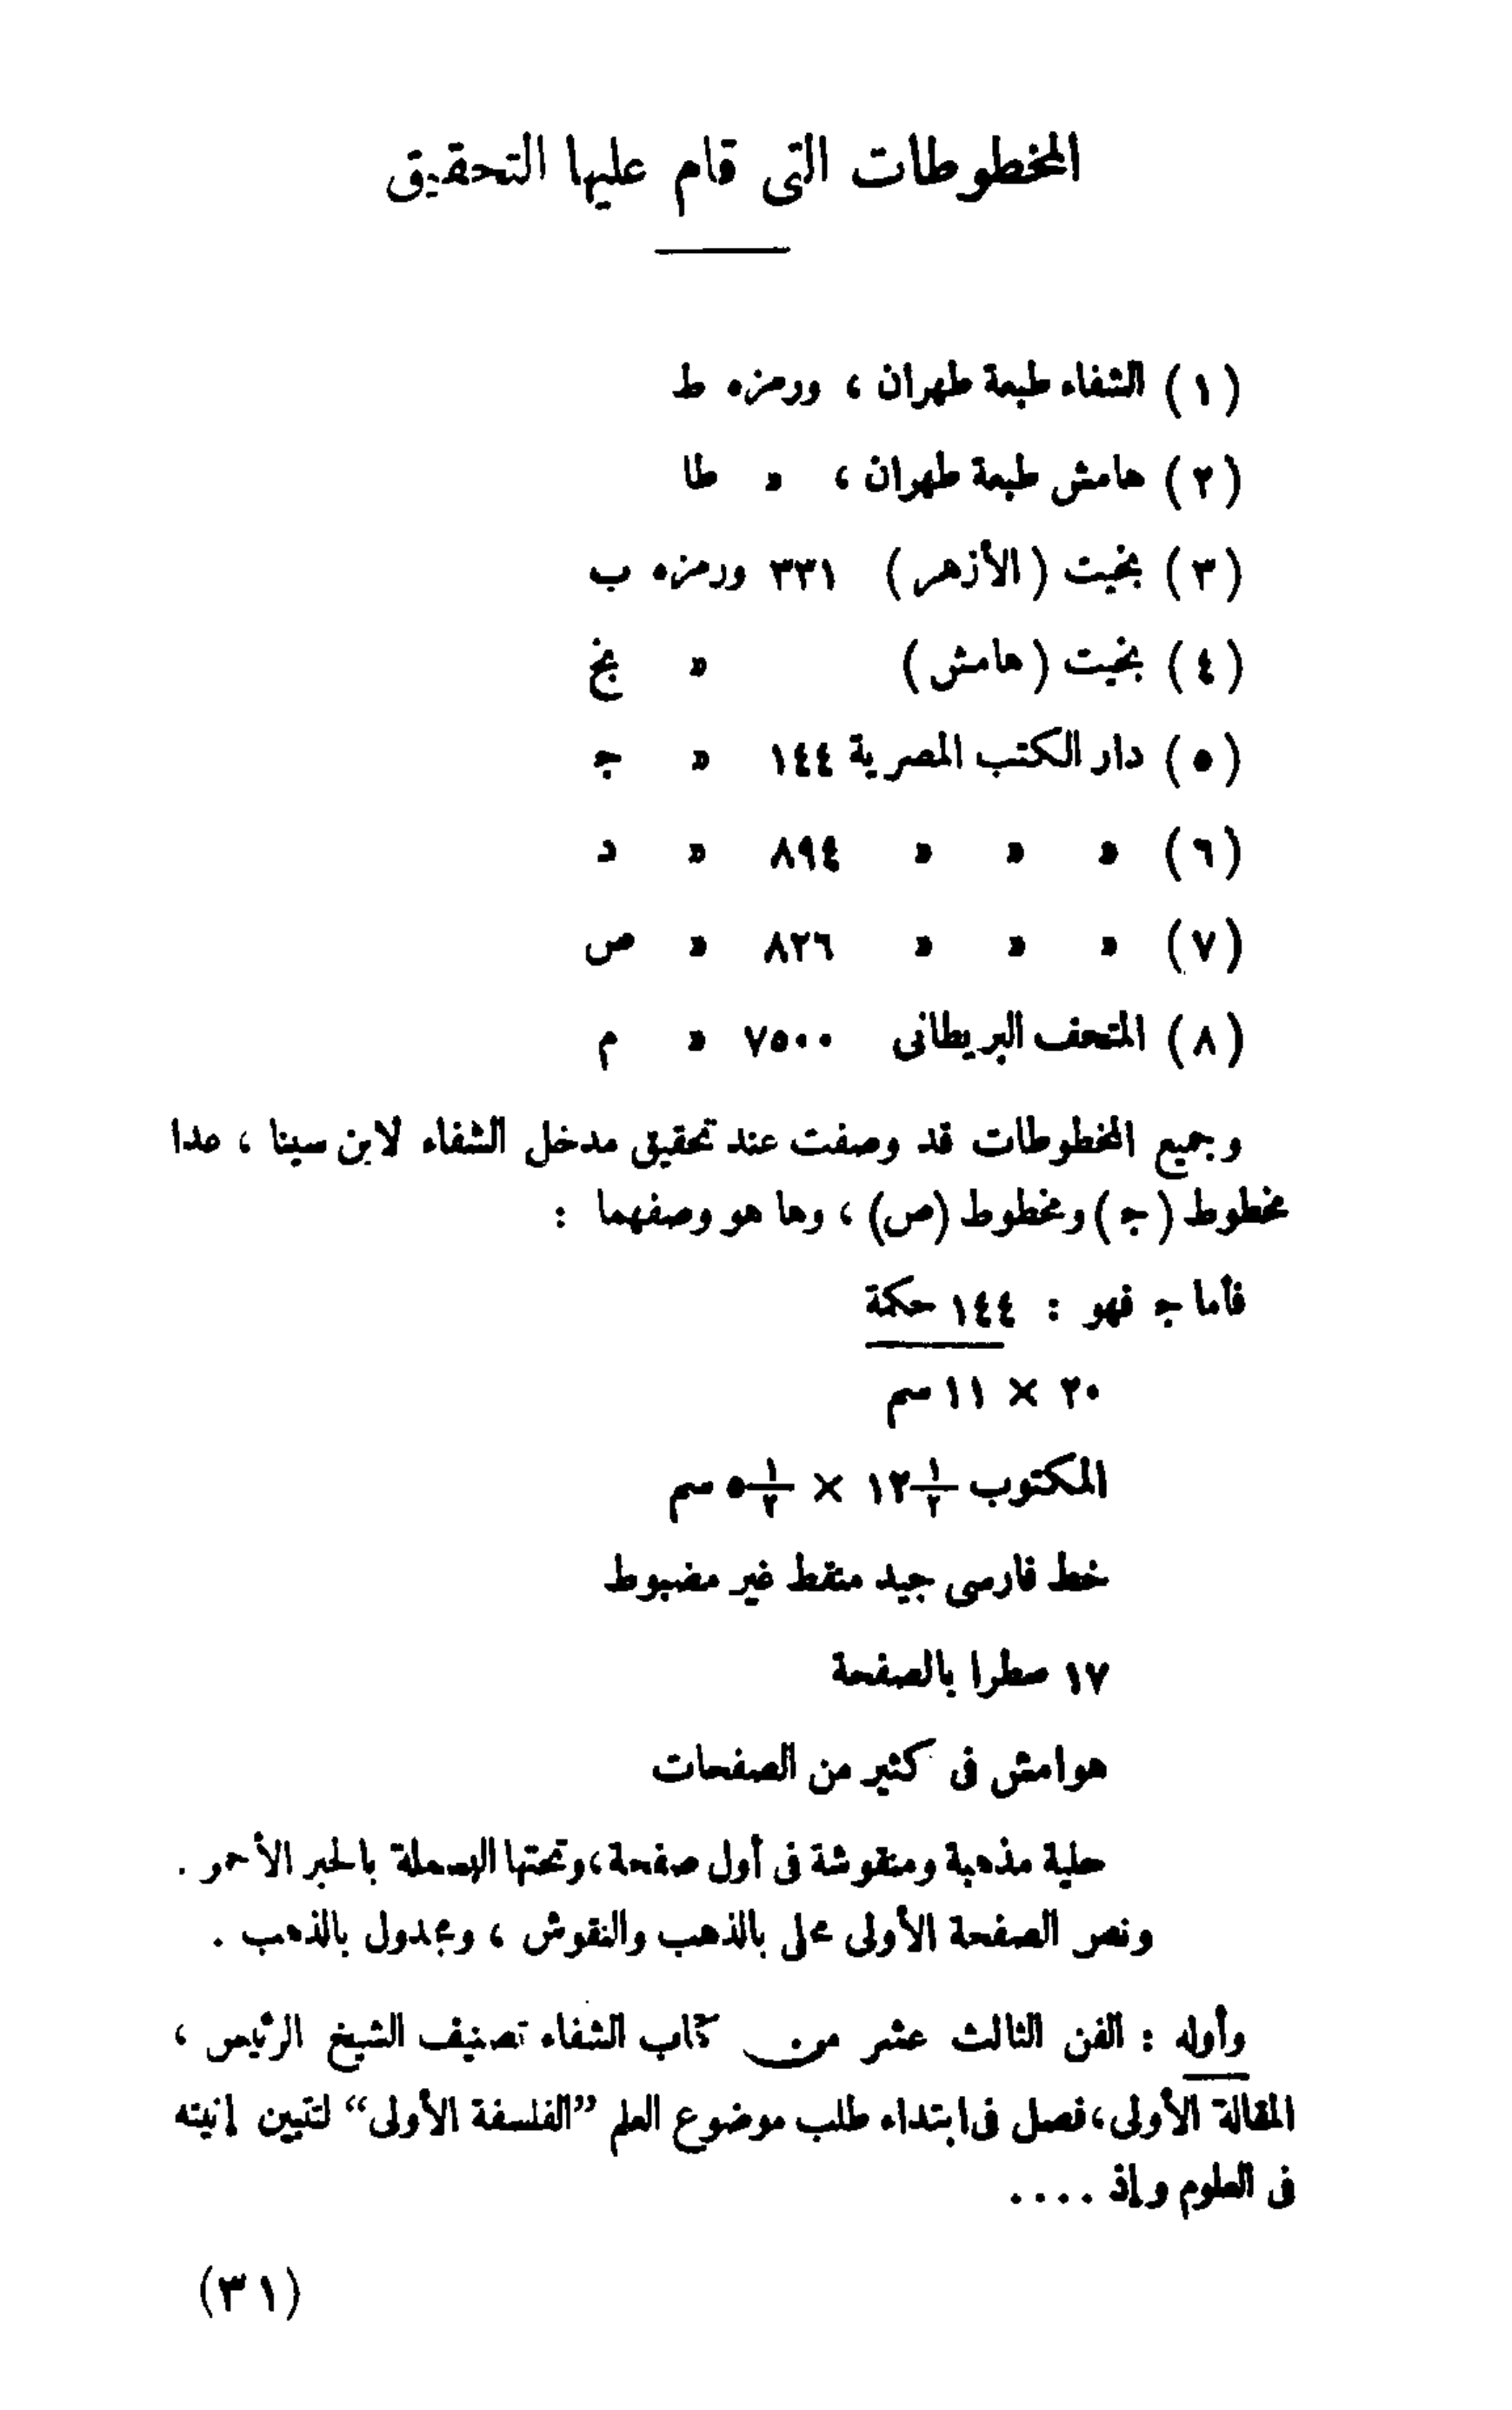 المخطوطات التى قام عليها التحقيق
(١) الشفاء طبعة طهران ، ورمزه ط
(٢) هامش طبعة طهران ، » طا
(٣) بخيت (الأزهر) ٣٣١ ورمزه ب
(٤) بخيت (هامش) » بخ
(٥) دار الكتب المصرية ١٤٤ » ج
(٦) » » » ٨٩٤ » د
(٧) » » » ٨٢٦ » ص
(٨) المتحف البريطانى ٧٥٠٠ » م
وجميع المخطوطات قد وصفت عند تحقيق مدخل الشفاء لابن سينا ، عدا
مخطوط (ج) ومخطوط (ص) ، وها هو وصفهما :
فأما ج فهو : ١٤٤ حكمة
٢٠ × ١١ سم
المكتوب ١٢١/٢ × ٥١/٢ سم
خط فارسى جيد منقط غير مضبوط
١٧ سطرا بالصفحة
هوامش فى كثير من الصفحات
حلية مذهبة ومنقوشة فى أول صفحة ، وتحتها البسملة بالحبر الأحمر .
ونصر الصفحة الأولى محلى بالذهب والنقوش ، ومجدول بالذهب .
وأوله : الفن الثالث عشر من كتاب الشفاء تصنيف الشيخ الرئيس ،
المقالة الأولى ، فصل فى ابتداء طلب موضوع العلم ”الفلسفة الأولى“ لتتبين إنيته
فى العلوم وإذ ....
(٣١)